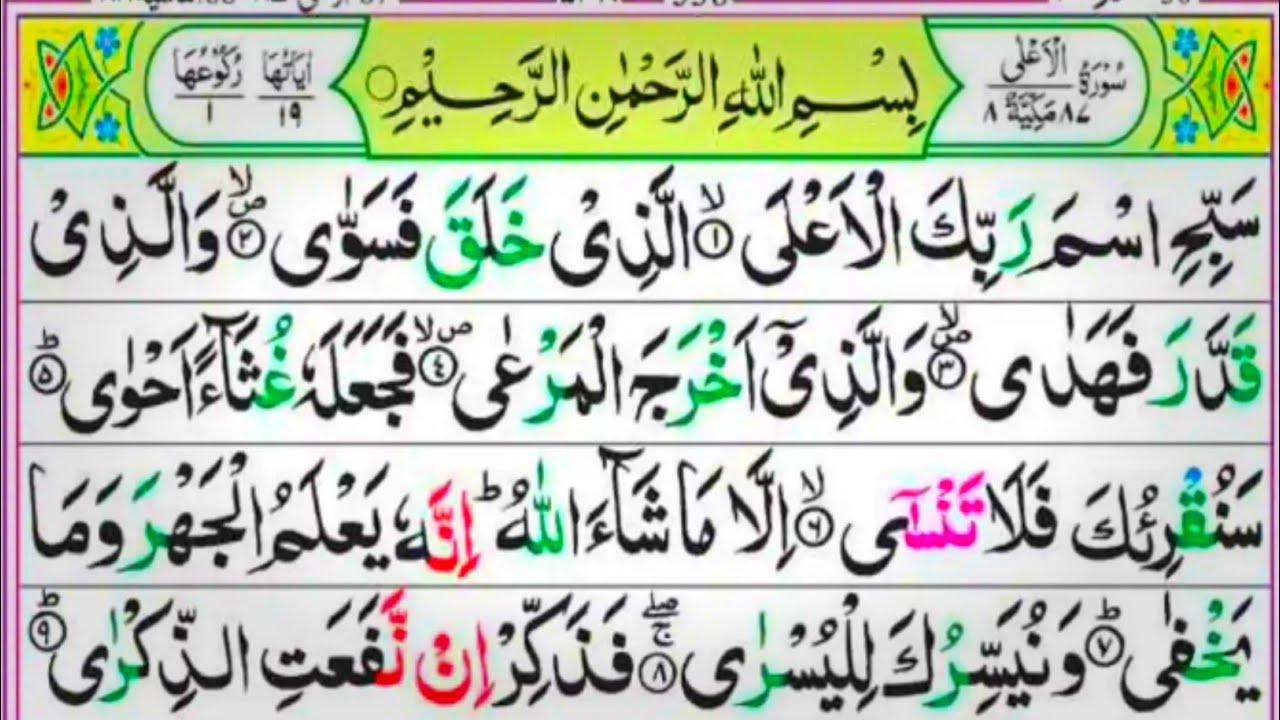 سُوْرَةُ الْاَعْلٰى
٨٧ مَكِّيَّةٌ ٨
بِسْمِ اللهِ الرَّحْمٰنِ الرَّحِيْمِ
اٰيَاتُهَا ١٩
رُكُوْعُهَا ١
سَبِّحِ اسْمَ رَبِّكَ الْاَعْلَى ۙ﴿١﴾ الَّذِىْ خَلَقَ فَسَوّٰى ۪ۙ﴿٢﴾ وَالَّذِىْ
قَدَّرَ فَهَدٰى ۪ۙ﴿٣﴾ وَالَّذِىْۤ اَخْرَجَ الْمَرْعٰى ۪ۙ﴿٤﴾ فَجَعَلَهٗ غُثَآءً اَحْوٰى ؕ﴿٥﴾
سَنُقْرِئُكَ فَلَا تَنْسٰٓى ۙ﴿٦﴾ اِلَّا مَا شَآءَ اللّٰهُ ؕ اِنَّهٗ يَعْلَمُ الْجَهْرَ وَمَا
يَخْفٰى ؕ﴿٧﴾ وَنُيَسِّرُكَ لِلْيُسْرٰى ۖۚ﴿٨﴾ فَذَكِّرْ اِنْ نَّفَعَتِ الذِّكْرٰى ؕ﴿٩﴾